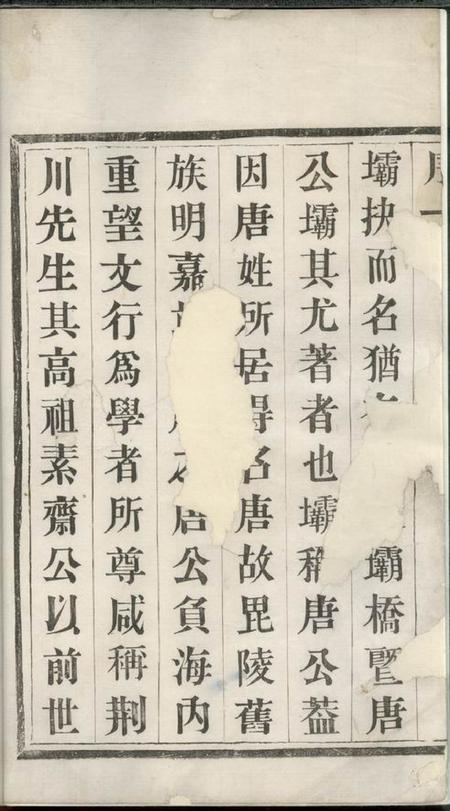 壩抉而名猶壩橋暨唐
公壩其尤著者也壩稱唐公葢
因唐姓所居得名唐故毘陵舊
族明嘉唐公負海内
重望文行爲學者所尊咸稱荆
川先生其高祖素齋公以前世